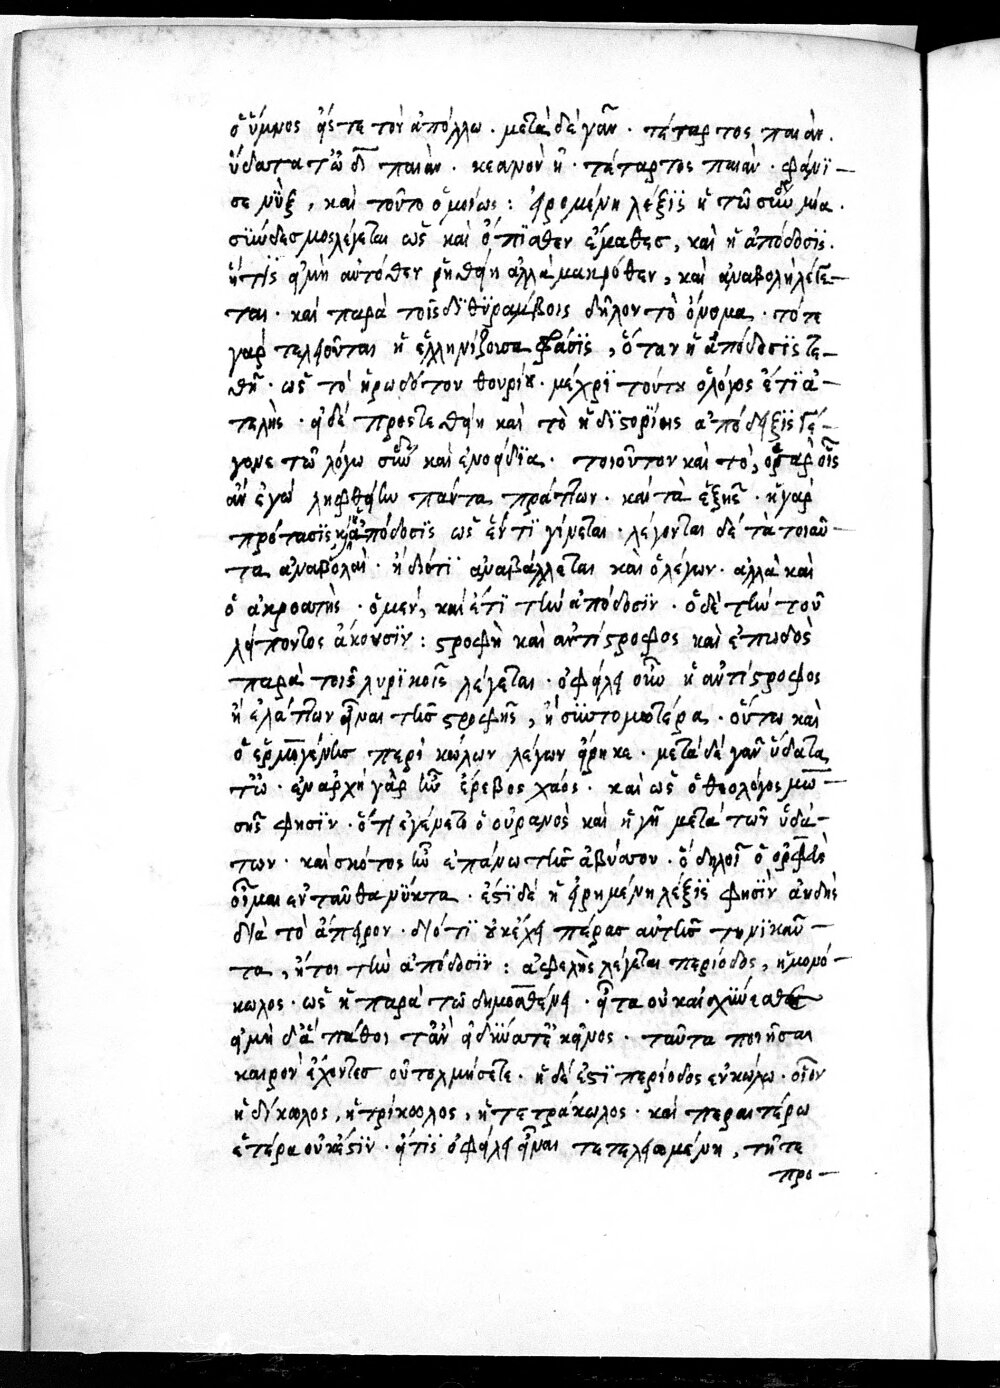 ὁ ὕμνος εἴς τε τὸν ἀπόλλω. μετὰ δὲ γᾶν. τέταρτος παιάν.
ὕδατα τῶ παιάν. κεανὸν ἢ. τέταρτος παιὰν. φάνϊ-
σε νὺξ, καὶ τοῦτο ὁμοίως: εἰρομένη λέξϊς ἡ τῶ συν μία.
σϋνδεσμος λέγεται ὡς καὶ ὄπϊσθεν ἔμαθες, καὶ ἡ ἀπόδοσϊς.
ἥτϊς εἰ μὴ αὐτόθεν ῥηθείη ἀλλὰ μακρόθεν, καὶ ἀναβολὴ λέγε-
ται. καὶ παρὰ τοῖς δϊθϋράμβοις δῆλον τὸ ὄνομα. τότε
γὰρ τελειοῦται ἡ ἑλληνίζουσα φάσϊς, ὅταν ἡ ἀπόδοσϊς τε-
θῆ. ὡς τὸ ἡρωδότου θουρίου. μέχρϊ τούτου ὁ λόγος ἔτϊ ἀ-
τελής. εἰ δὲ προστεθείη καὶ τὸ ἡ δϊστορϊίης ἀπόδειξϊς γέ-
γονε τῶ λόγω καὶ ἐνοειδϊα. τοιοῦτον καὶ τὸ, ὃ γὰρ οἷς
ἂν ἐγὼ ληφθείην πάντα πράττων. καὶ τὰ ἑξῆς. ἡ γὰρ
πρότασϊς καὶ ἀπόδοσϊς ὡς ἕν τϊ γίνεται. λέγονται δὲ τὰ τοιαῦ-
τα ἀναβολαὶ. ἢ διότϊ ἀναβάλλεται καὶ ὁ λέγων. ἀλλὰ καὶ
ὁ ἀκροατής. ὁ μὲν, καὶ ἔτϊ τὴν ἀπόδοσϊν. ὁ δὲ τὴν τοῦ
λείποντος ἄκουσϊν: στροφὴ καὶ ἀντίστροφος καὶ ἐπωδὸς
παρὰ τοῖς λυρϊκοῖς λέγεται. ὀφείλει οὖν ἡ ἀντίστροφος
ἢ ἐλάττων εἶναι τῆς στροφῆς, ἢ σϋντομωτέρα. οὕτω καὶ
ὁ ἑρμογένης περὶ κώλων λέγων εἴρηκε. μετὰ δὲ γᾶν ὕδατα
τῶ. ἐν ἀρχῇ γὰρ ἦν ἔρεβος χάος. καὶ ὡς ὁ θεολόγος μω-
σῆς φησϊν. ὅτι ἐγένετο ὁ οὐρανὸς καὶ ἡ γῆ μετὰ τῶν ὑδά-
των. καὶ σκότος ἦν ἐπάνω τῆς ἀβύσσου. ὃ δηλοῖ ὁ ὀρφεὺς
οἶμαι ἐνταῦθα νϋκτα. ἔστϊ δὲ ἡ εἰρημένη λέξϊς φησϊν ἀηδὴς
διὰ τὸ ἄπειρον. διότϊ οὐκ ἔχει πέρας αὐτῆς τηνϊκαῦ-
τα, ἤτοι τὴν ἀπόδοσϊν: ἀφελὴς λέγεται περίοδος, ἡ μονό-
κωλος. ὡς ἡ παρὰ τῶ δημοσθένει. εἶτα οὐκ αἰσχϋνεσθε
εἰ μὴ δ' ἃ πάθοι τ' ἂν εἰ δϋναιτ' ἐκεῖνος. ταῦτα ποιῆσαι
καιρὸν ἔχοντες οὐ τολμήσετε. ἡ δὲ ἔστϊ περίοδος ἐν κώλω. οἷον
ἡ δίκωλος, ἡ τρίκωλος, ἡ τετράκωλος. καὶ περαιτέρω
ἑτέρα οὐκ ἔστϊν. εἴτϊς ὀφείλει εἶναι τετελεσμένη, τῆ τε
προ-